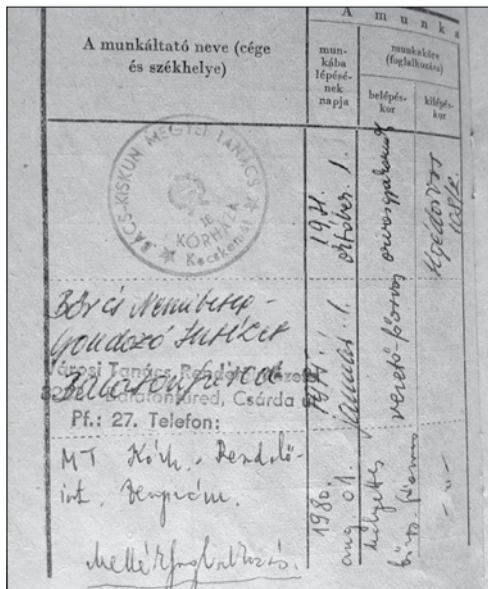 A munka
A munkáltató neve (cége
és székhelye)
mun-
kába
lépésé-
nek
napja
munkaköre
(foglalkozása)
belépés-
kor
kilépés-
kor
★ BÁCS-KISKUN MEGYEI TANÁCS ★
KÓRHÁZA
Kecskemét
1971.
október 1.
Bőr és Nemibeteg-
Gondozó Intézet
Balatonfüred
Városi Tanács
Balatonfüred, Csárda
Pf.: 27. Telefon:
január 1.
vezető-főorvos
MT Kórh. - Rendelő-
int. Veszprém.
Mellékfoglalkozás.
1980.
aug. 01.
helyettes
- " -